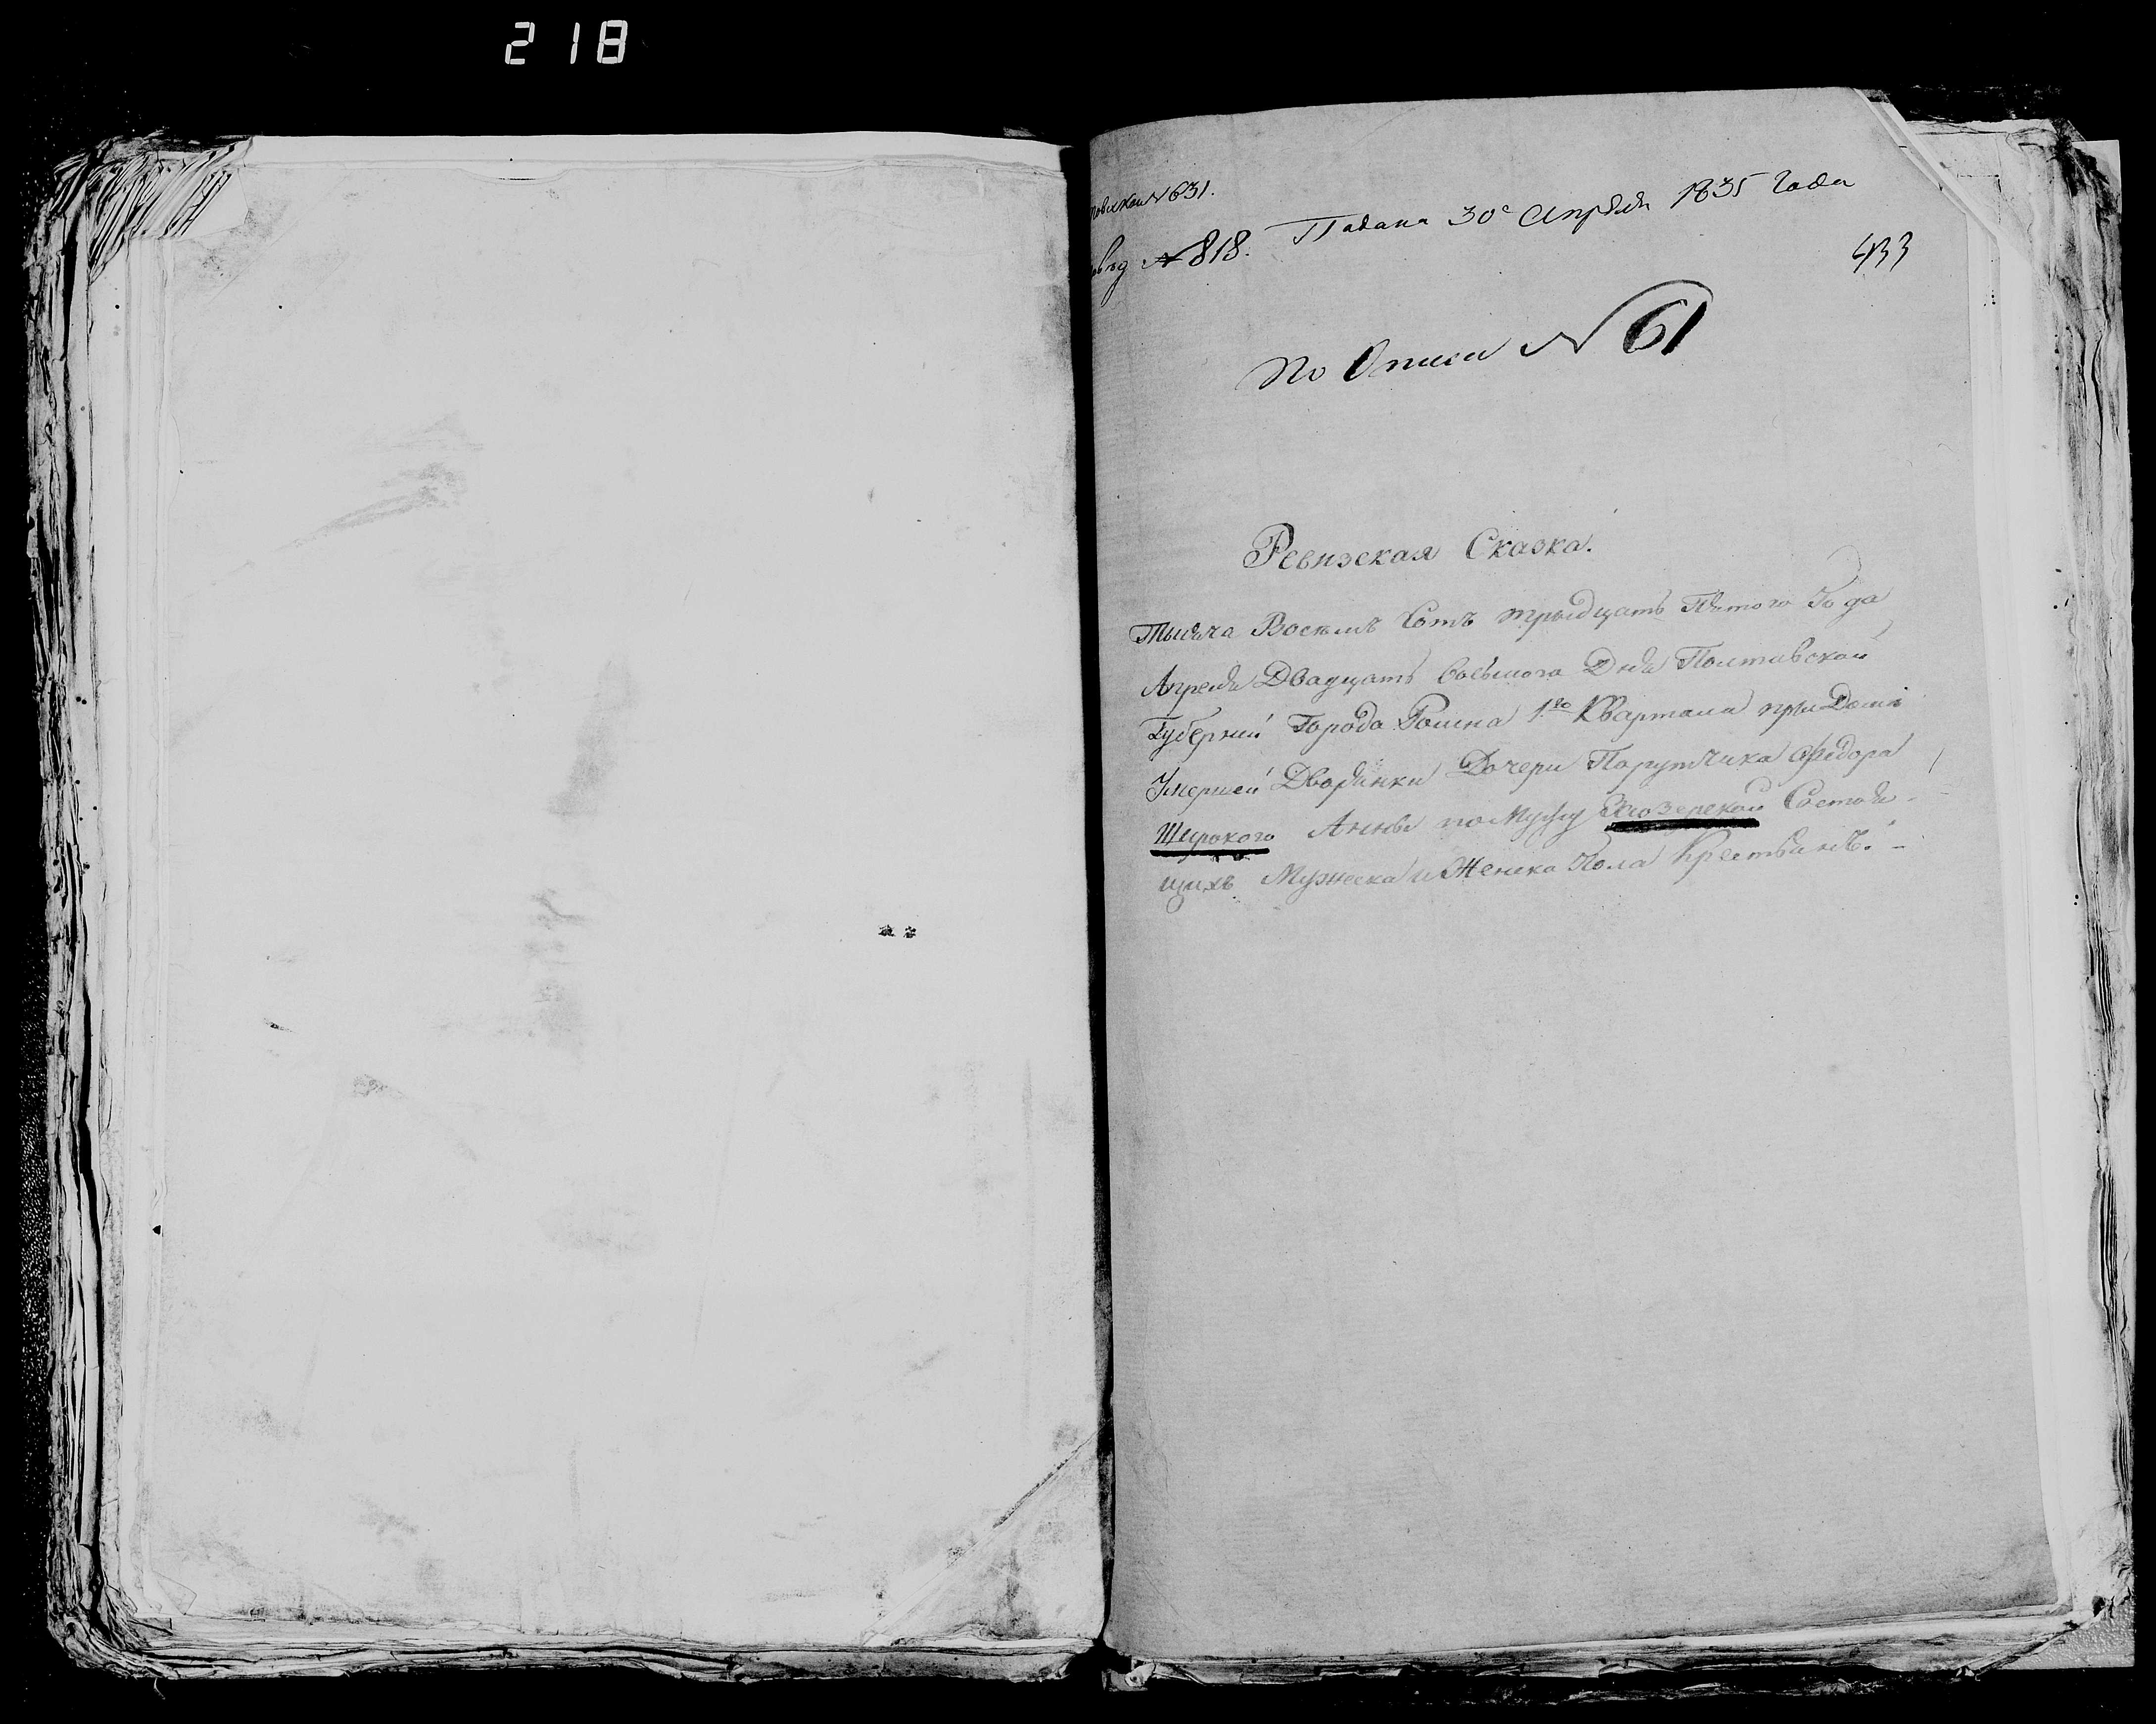 218
№ 631.
№ 818. Подана 30г Апреля 1835 Года
433
По Описи № 61
Ревизская Сказка.
Тысяча Восемь Сотъ тридцать Пятого Года
Апреля Двадцать Восьмого Дня Полтавской
Губерний Города Ромна 1го Квартала при Доми
Умершей Дворянки Дочери Порутчика Федора
Щирокого Анны по Мужу Состоя-
щихъ Мужеска и Женска Пола Крестьянъ. -